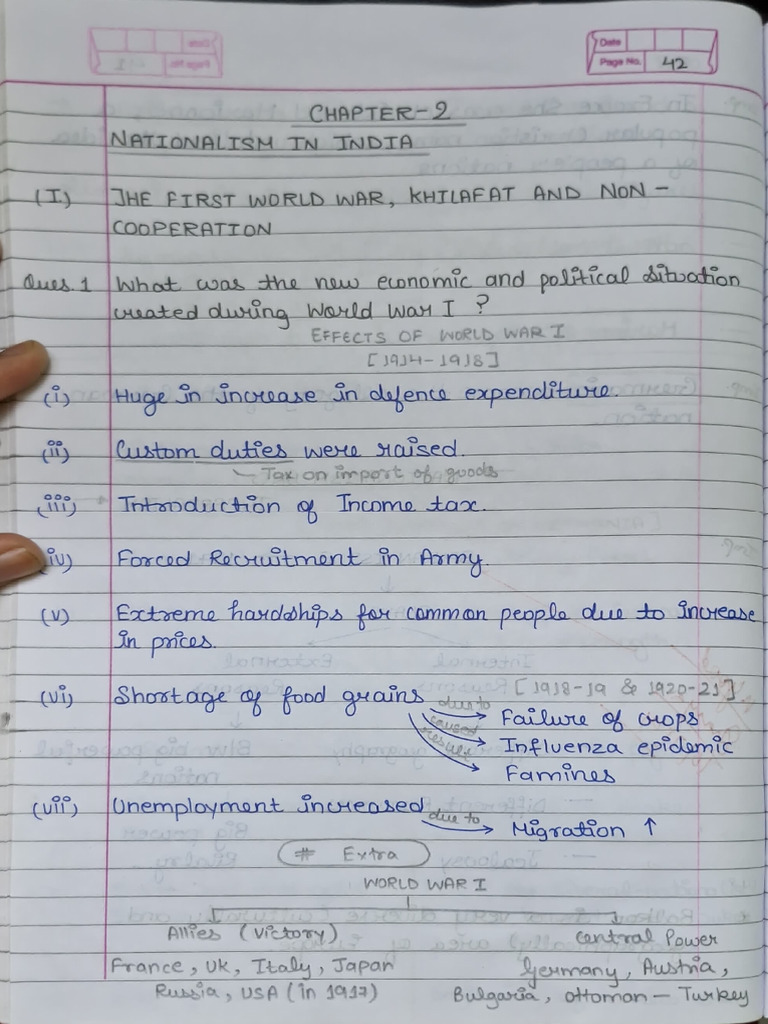 Date
Page No. 42
CHAPTER-2
NATIONALISM IN INDIA
(I) THE FIRST WORLD WAR, KHILAFAT AND NON -
COOPERATION
Ques. 1 What was the new economic and political situation
created during World War I ?
EFFECTS OF WORLD WAR I
[1914-1918]
(i) Huge in increase in defence expenditure.
(ii) Custom duties were raised.
Tax on import of goods
(iii) Introduction of Income tax.
(iv) Forced Recruitment in Army.
(v) Extreme hardships for common people due to increase
in prices.
(vi) Shortage of food grains [1918-19 & 1920-21]
due to Failure of crops
caused Influenza epidemic
result Famines
(vii) Unemployment increased due to Migration ↑
# Extra
WORLD WAR I
Allies (Victory) Central Power
France, UK, Italy, Japan Germany, Austria,
Russia, USA (in 1917) Bulgaria, Ottoman - Turkey